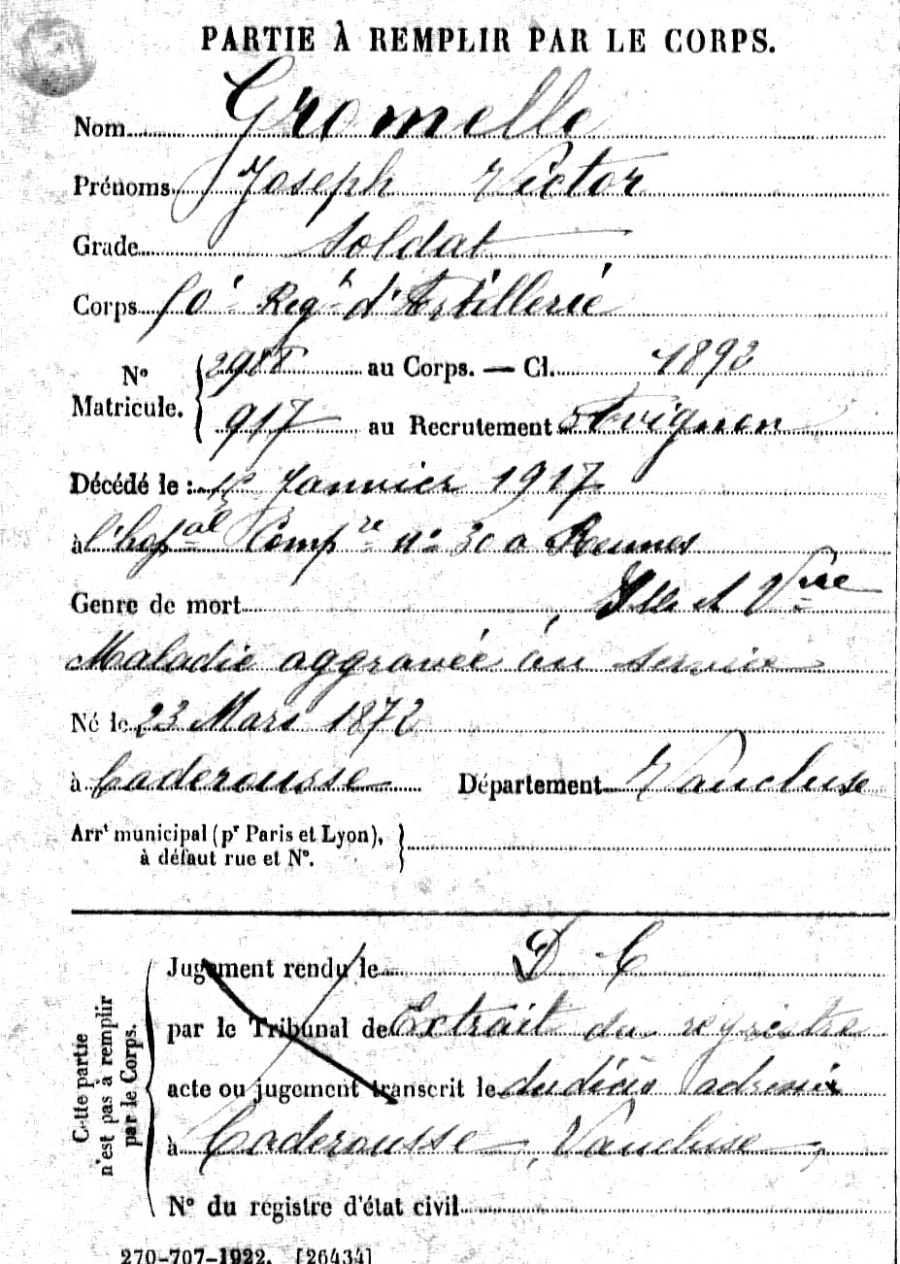 PARTIE À REMPLIR PAR LE CORPS.
Nom Gromelle
Prénoms Joseph Victor
Grade Soldat
Corps 50e Regt d'Artillerie
No Matricule. 2988 au Corps. — Cl. 1892
917 au Recrutement Avignon
Décédé le : Janvier 1917
à l'hopal Compre no 30 a Rennes
Genre de mort Ille et Vne
Maladie aggravée au service
Né le 23 Mars 1872
à Caderousse Département Vaucluse
Arrt municipal (pr Paris et Lyon),
à défaut rue et No.
Cette partie n'est pas à remplir par le Corps.
Jugement rendu le D C
par le Tribunal de Extrait du registre
acte ou jugement transcrit le du décès adressé
à Caderousse, Vaucluse
No du registre d'état civil
270-707-1922. [26434]